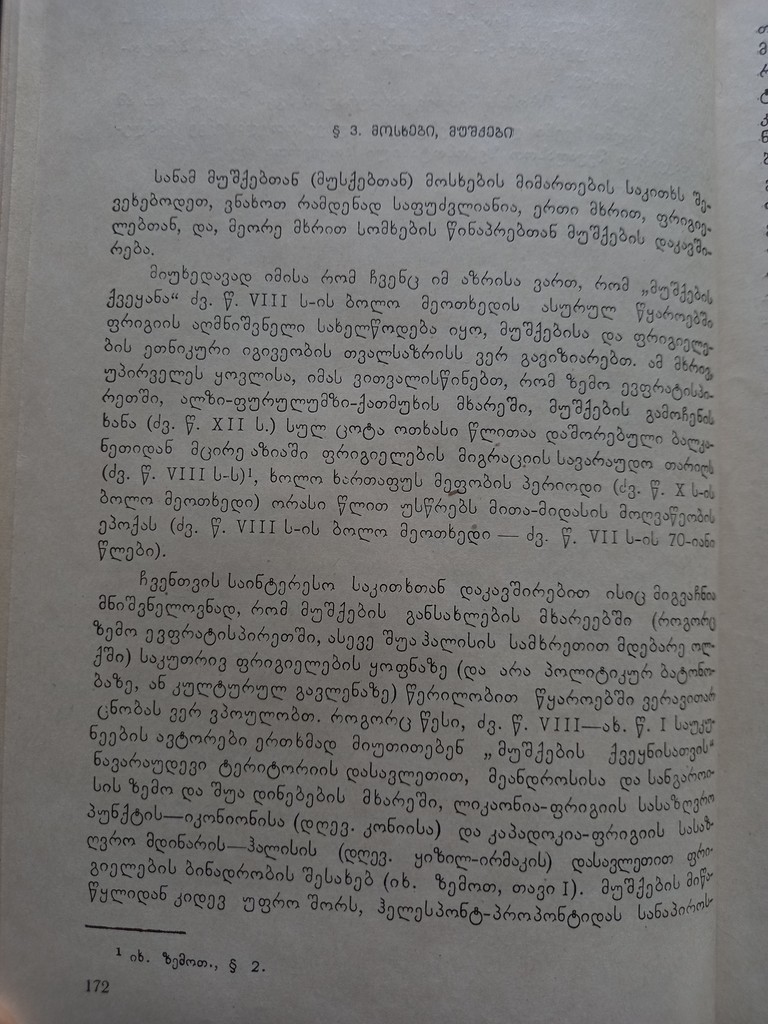 § 3. მოსხები, მუშქები
სანამ მუშქებთან (მუსქებთან) მოსხების მიმართების საკითხს შე-
ვეხებოდეთ, ვნახოთ რამდენად საფუძვლიანია, ერთი მხრით, ფრიგიე-
ლებთან, და, მეორე მხრით სომხების წინაპრებთან მუშქების დაკავში-
რება.
მიუხედავად იმისა რომ ჩვენც იმ აზრისა ვართ, რომ „მუშქების
ქვეყანა“ ძვ. წ. VIII ს-ის ბოლო მეოთხედის ასურულ წყაროებში
ფრიგიის აღმნიშვნელი სახელწოდება იყო, მუშქებისა და ფრიგიელე-
ბის ეთნიკური იგივეობის თვალსაზრისს ვერ გავიზიარებთ. ამ მხრივ,
უპირველეს ყოვლისა, იმას ვითვალისწინებთ, რომ ზემო ევფრატისპი-
რეთში, ალზი-ფურულუმზი-ქათმუხის მხარეში, მუშქების გამოჩენის
ხანა (ძვ. წ. XII ს.) სულ ცოტა ოთხასი წლითაა დაშორებული ბალკა-
ნეთიდან მცირე აზიაში ფრიგიელების მიგრაციის სავარაუდო თარიღს
(ძვ. წ. VIII ს-ს)¹, ხოლო ხართაფუს მეფობის პერიოდი (ძვ. წ. X ს-ის
ბოლო მეოთხედი) ორასი წლით უსწრებს მითა-მიდასის მოღვაწეობის
ეპოქას (ძვ. წ. VIII ს-ის ბოლო მეოთხედი — ძვ. წ. VII ს-ის 70-იანი
წლები).
ჩვენთვის საინტერესო საკითხთან დაკავშირებით ისიც მიგვაჩნია
მნიშვნელოვნად, რომ მუშქების განსახლების მხარეებში (როგორც
ზემო ევფრატისპირეთში, ასევე შუა ჰალისის სამხრეთით მდებარე ოლ-
ქში) საკუთრივ ფრიგიელების ყოფნაზე (და არა პოლიტიკურ ბატონო-
ბაზე, ან კულტურულ გავლენაზე) წერილობით წყაროებში ვერავითარ
ცნობას ვერ ვპოულობთ. როგორც წესი, ძვ. წ. VIII—ახ. წ. I საუკუ-
ნეების ავტორები ერთხმად მიუთითებენ „მუშქების ქვეყნისათვის“
ნავარაუდევი ტერიტორიის დასავლეთით, მეანდროსისა და სანგარიო-
სის ზემო და შუა დინებების მხარეში, ლიკაონია-ფრიგიის სასაზღვრო
პუნქტის—იკონიონისა (დღევ. კონიისა) და კაპადოკია-ფრიგიის სასაზ-
ღვრო მდინარის—ჰალისის (დღევ. ყიზილ-ირმაკის) დასავლეთით ფრი-
გიელების ბინადრობის შესახებ (იხ. ზემოთ, თავი I). მუშქების მიწა-
წყლიდან კიდევ უფრო შორს, ჰელესპონტ-პროპონტიდას სანაპიროს-
¹ იხ. ზემოთ., § 2.
172